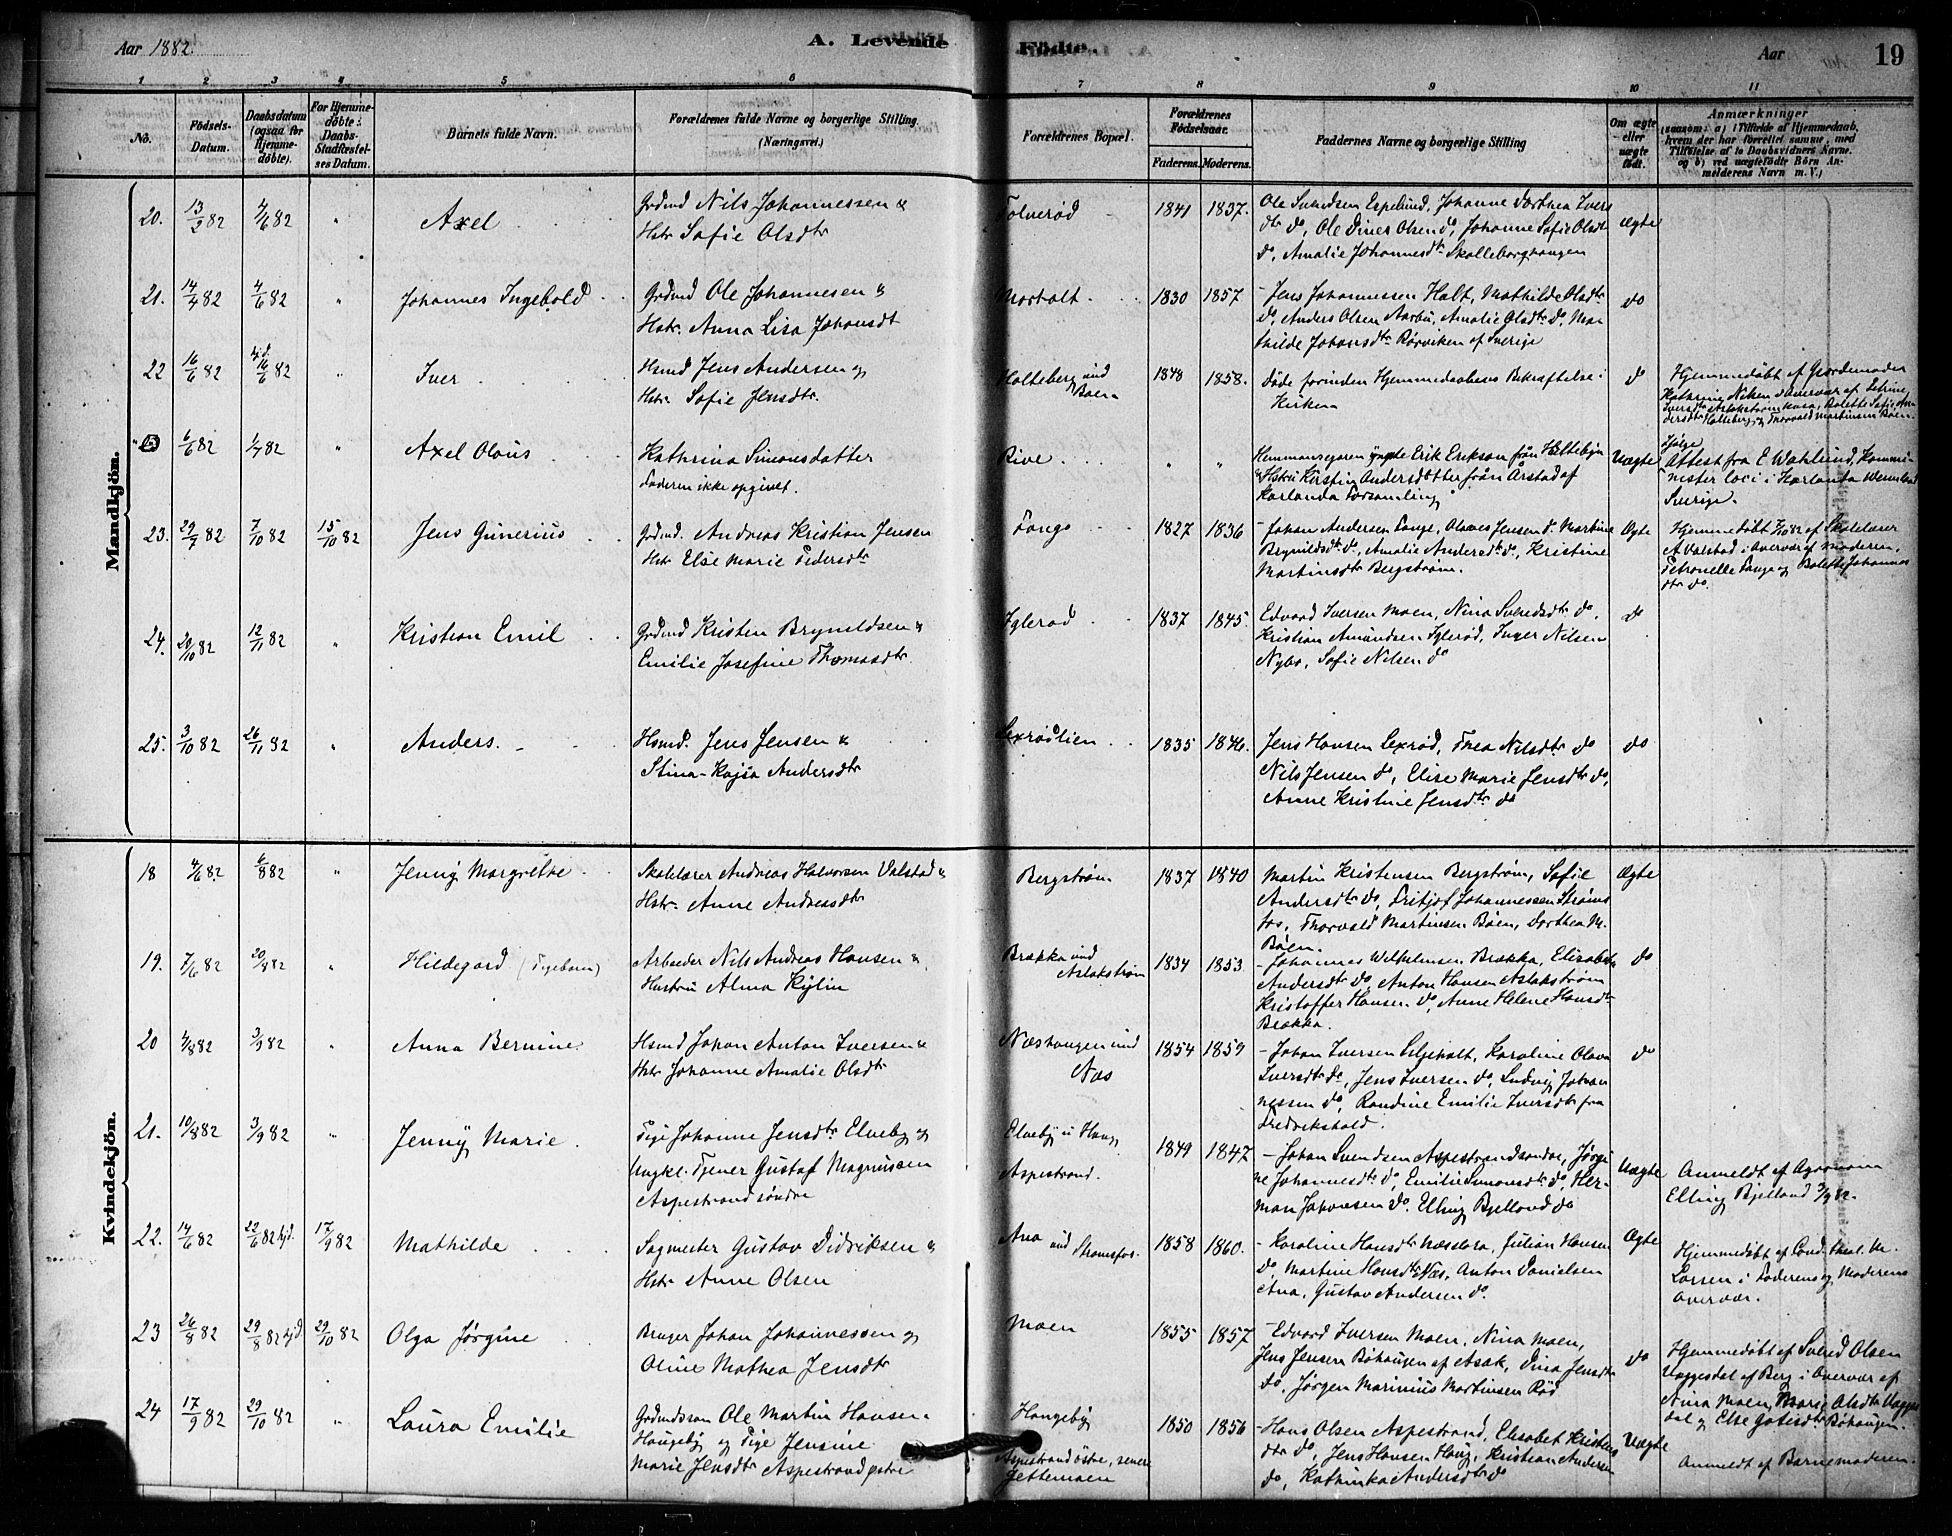 Aar 1882.
A. Levende
Födte.
Aar
19
1 2 3 4 5 6 7 8 9 10 11
No.
Födsels-Datum.
Daabsdatum (ogsaa for Hjemmedöbte).
For Hjemmedöbte: Daabs-Stadfæstelses Datum.
Barnets fulde Navn.
Forældrenes fulde Navne og borgerlige Stilling. (Næringsvei.)
Forældrenes Bopæl.
Forældrenes Födselsaar.
Faderens. Moderens.
Faddernes Navne og borgerlige Stilling
Om ægte eller uægte födt.
Anmærkninger
(saasom: a) i Tilfælde af Hjemmedaab, hvem der har forrettet samme, med Tilföielse af to Daabsvidners Navne. og b) ved uægtefödte Börn Anmelderens Navn m. V.)
Mandkjön.
20. 13/2 82 4/6 82 " Axel
Grdmd Nils Johannessen &
Hstr Sofie Olsdtr
Tolnerød 1841 1837.
Ole Svendsen Espelund, Johanne Dorthea Ivers
dtr do, Ole Dines Olsen do, Johanne Sofie Olsdtr
do, Amalie Johannesdtr Skolleborghaugen
Ægte
21. 14/4 82 4/6 82 " Johannes Ingebold
Grdmd Ole Johannesen &
Hstr. Anna Lisa Johansdt
Morholt 1830 1857
Jens Johannessen Holt, Mathilde Olsdtr
do, Anders Olsen Aarbu, Amalie Olsdtr do, Ma-
thilde Johansdtr Rørviken af Sverige
do
22 16/6 82 hjd. 16/6 82 " Iver
Hsmd Jens Andersen og
Hstr. Sofie Jensdtr.
Holteberg und Boen 1848 1858.
Døde forinden Hjemmedaabens Bekræftelse i
Kirken
do
Hjemmedøbt af Gjordemoder
Kathrine Nilsen i Overvær af Petrine
Iversdtr Aslakstrømkasa, Bolette Sofie An-
dersdtr Holteberg og Thorvald Martinsen Bøen.
6/6 82 1/7 82 " Axel Olaus
Kathrina Simonsdatter
Faderen ikke opgivet.
Rive " "
Hemmansegaren yngste Erik Erikson från Hæltebyn
& Hstru Kerstin Andersdotter från Årstad af
Karlanda Forsamling
Uægte
Ifølge
Attest fra E. Wahlund, Kommi-
nister loci i Karlanda Wermland
Sverige.
23. 29/7 82 7/10 82 15/10 82 Jens Gunerius
Grdmd. Andreas Kristian Jensen
Hstr Else Marie Pedersdtr
Fange 1827 1836
Johan Andersen Fange, Olaves Jensen do Martine
Brynildsdtr do, Amalie Andersdtr do, Kristine
Martinsdtr Bergstrøm.
Ægte
Hjemmedøbt 7/10 82 af Skolelærer
A Valstad i Overvær af Moderen,
Petronelle Fange og Bolette Johannes
dtr do.
24. 20/10 82 12/11 82 " Kristian Emil
Grdmd Kristen Brynildsen &
Emilie Josefine Thomasdtr.
Iglerød 1837 1845.
Edvard Iversen Moen, Nina Svendsdtr do,
Kristian Amundsen Iglerød, Inger Nilsen
Nybo, Sofie Nilsen do
do
25. 3/10 82 26/11 82 " Anders.
Hsmd. Jens Jensen &
Stina-Kajsa Andersdtr
Lexrødlien 1835 1846.
Jens Hansen Lexrød, Thea Nilsdtr do
Nils Jensen do, Elise Marie Jensdtr do,
Anne Kristine Jensdtr do
do
Kvindekjön.
18 4/6 82. 6/8 82 " Jenny Margrethe
Skolelærer Andreas Halvorsen Valstad &
Hstr. Anne Andreasdtr
Bergstrøm 1837 1840
Martin Kristensen Bergstrøm, Sofie
Andersdtr do, Fritjof Johannessen Strøms
fos, Thorvald Martinsen Bøen, Dorthea M.
Bøen.
Ægte
19. 7/6 82 20/8 82 " Hildegard (Pigebarn)
Arbeider Nils Andreas Hansen &
Hustru Alma Kylin
Brækka und Aslakstrøm 1834 1853
Johannes Wilhelmsen Brækka, Elisabeth
Andersdtr do, Anton Hansen Aslakstrøm
Kristoffer Hansen do, Anne Helene Hansdtr
Brækka.
do
20 1/8 82 3/9 82 " Anna Bernine
Hsmd Johan Anton Iversen &
Hstr Johanne Amalie Olsdtr
Næshaugen und Næs 1854 1859
Johan Iversen Liljeholt, Karoline Olava
Iversdtr do, Jens Iversen do, Ludvig Johan-
nessen do, Randine Emilie Iversdtr fra
Fredrikshald.
do
21. 10/8 82 3/9 82 " Jenny Marie
Pige Johanne Jensdtr Elneby og
Ungkl. Tjener Gustaf Magnussen
Aspestrand søndre
Elneby u Haug
Aspestrand. 1849 1847
Johan Svendsen Aspestrandsøndre, Jørgi-
ne Johannesdtr do, Emilie Simonsdtr do, Her-
man Johansen do. Elling Bjelland do
Uægte
Anmeldt af Agronom
Elling Bjelland 3/9 82.
22. 14/6 82 22/6 82 hjd. 17/9 82 Mathilde
Sagmester Gustav Didriksen &
Hstr Anne Olsen
Ana und Strømsfos. 1858 1860.
Karoline Hansdtr Næsslora, Julian Hansen
do, Martine Hansdtr Næs, Anton Danielsen
Ana, Gustav Andersen do.
Ægte
Hjemmedøbt af Cand. theol. M.
Larsen i Faderens og Moderens
Overvær.
23 26/8 82 29/8 82 hjd. 29/10 82 Olga Jørgine
Bruger Johan Johannessen og
Oline Mathea Jensdtr
Moen 1855 1857
Edvard Iversen Moen, Nina Moen,
Jens Jensen Bøhaugen af Asak, Dina Jensdtr
do, Jørgen Marinius Martinsen Rød
do
Hjemmedøbt af Svend Olsen
Vaggesdal af Berg i Overvær af
Nina Moen, Marie Olsdtr Vagges
dal og Else Jensdtr Bøhaugen.
24 17/9 82 29/10 82 " Laura Emilie
Grdmdssøn Ole Martin Hansen
Haugeby og Pige Jensine
Marie Jensdtr Aspestrand østre
Haugeby
Aspestrand østre, senere
Jettemoen 1850 1856
Hans Olsen Aspestrand, Elisabet Kristens
dtr do, Jens Hansen Haug, Kristian Andersen
do, Kathinka Andersdtr do
Uægte
Anmeldt af Barnemoderen.